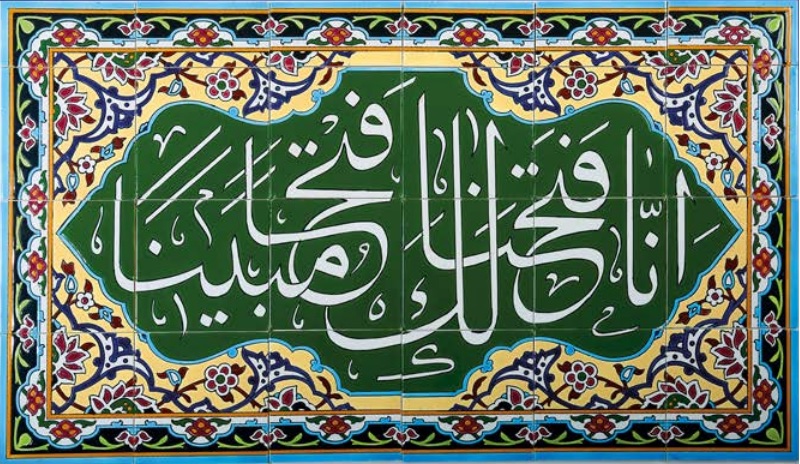 انّا فتحنا لك فتحا مبينا